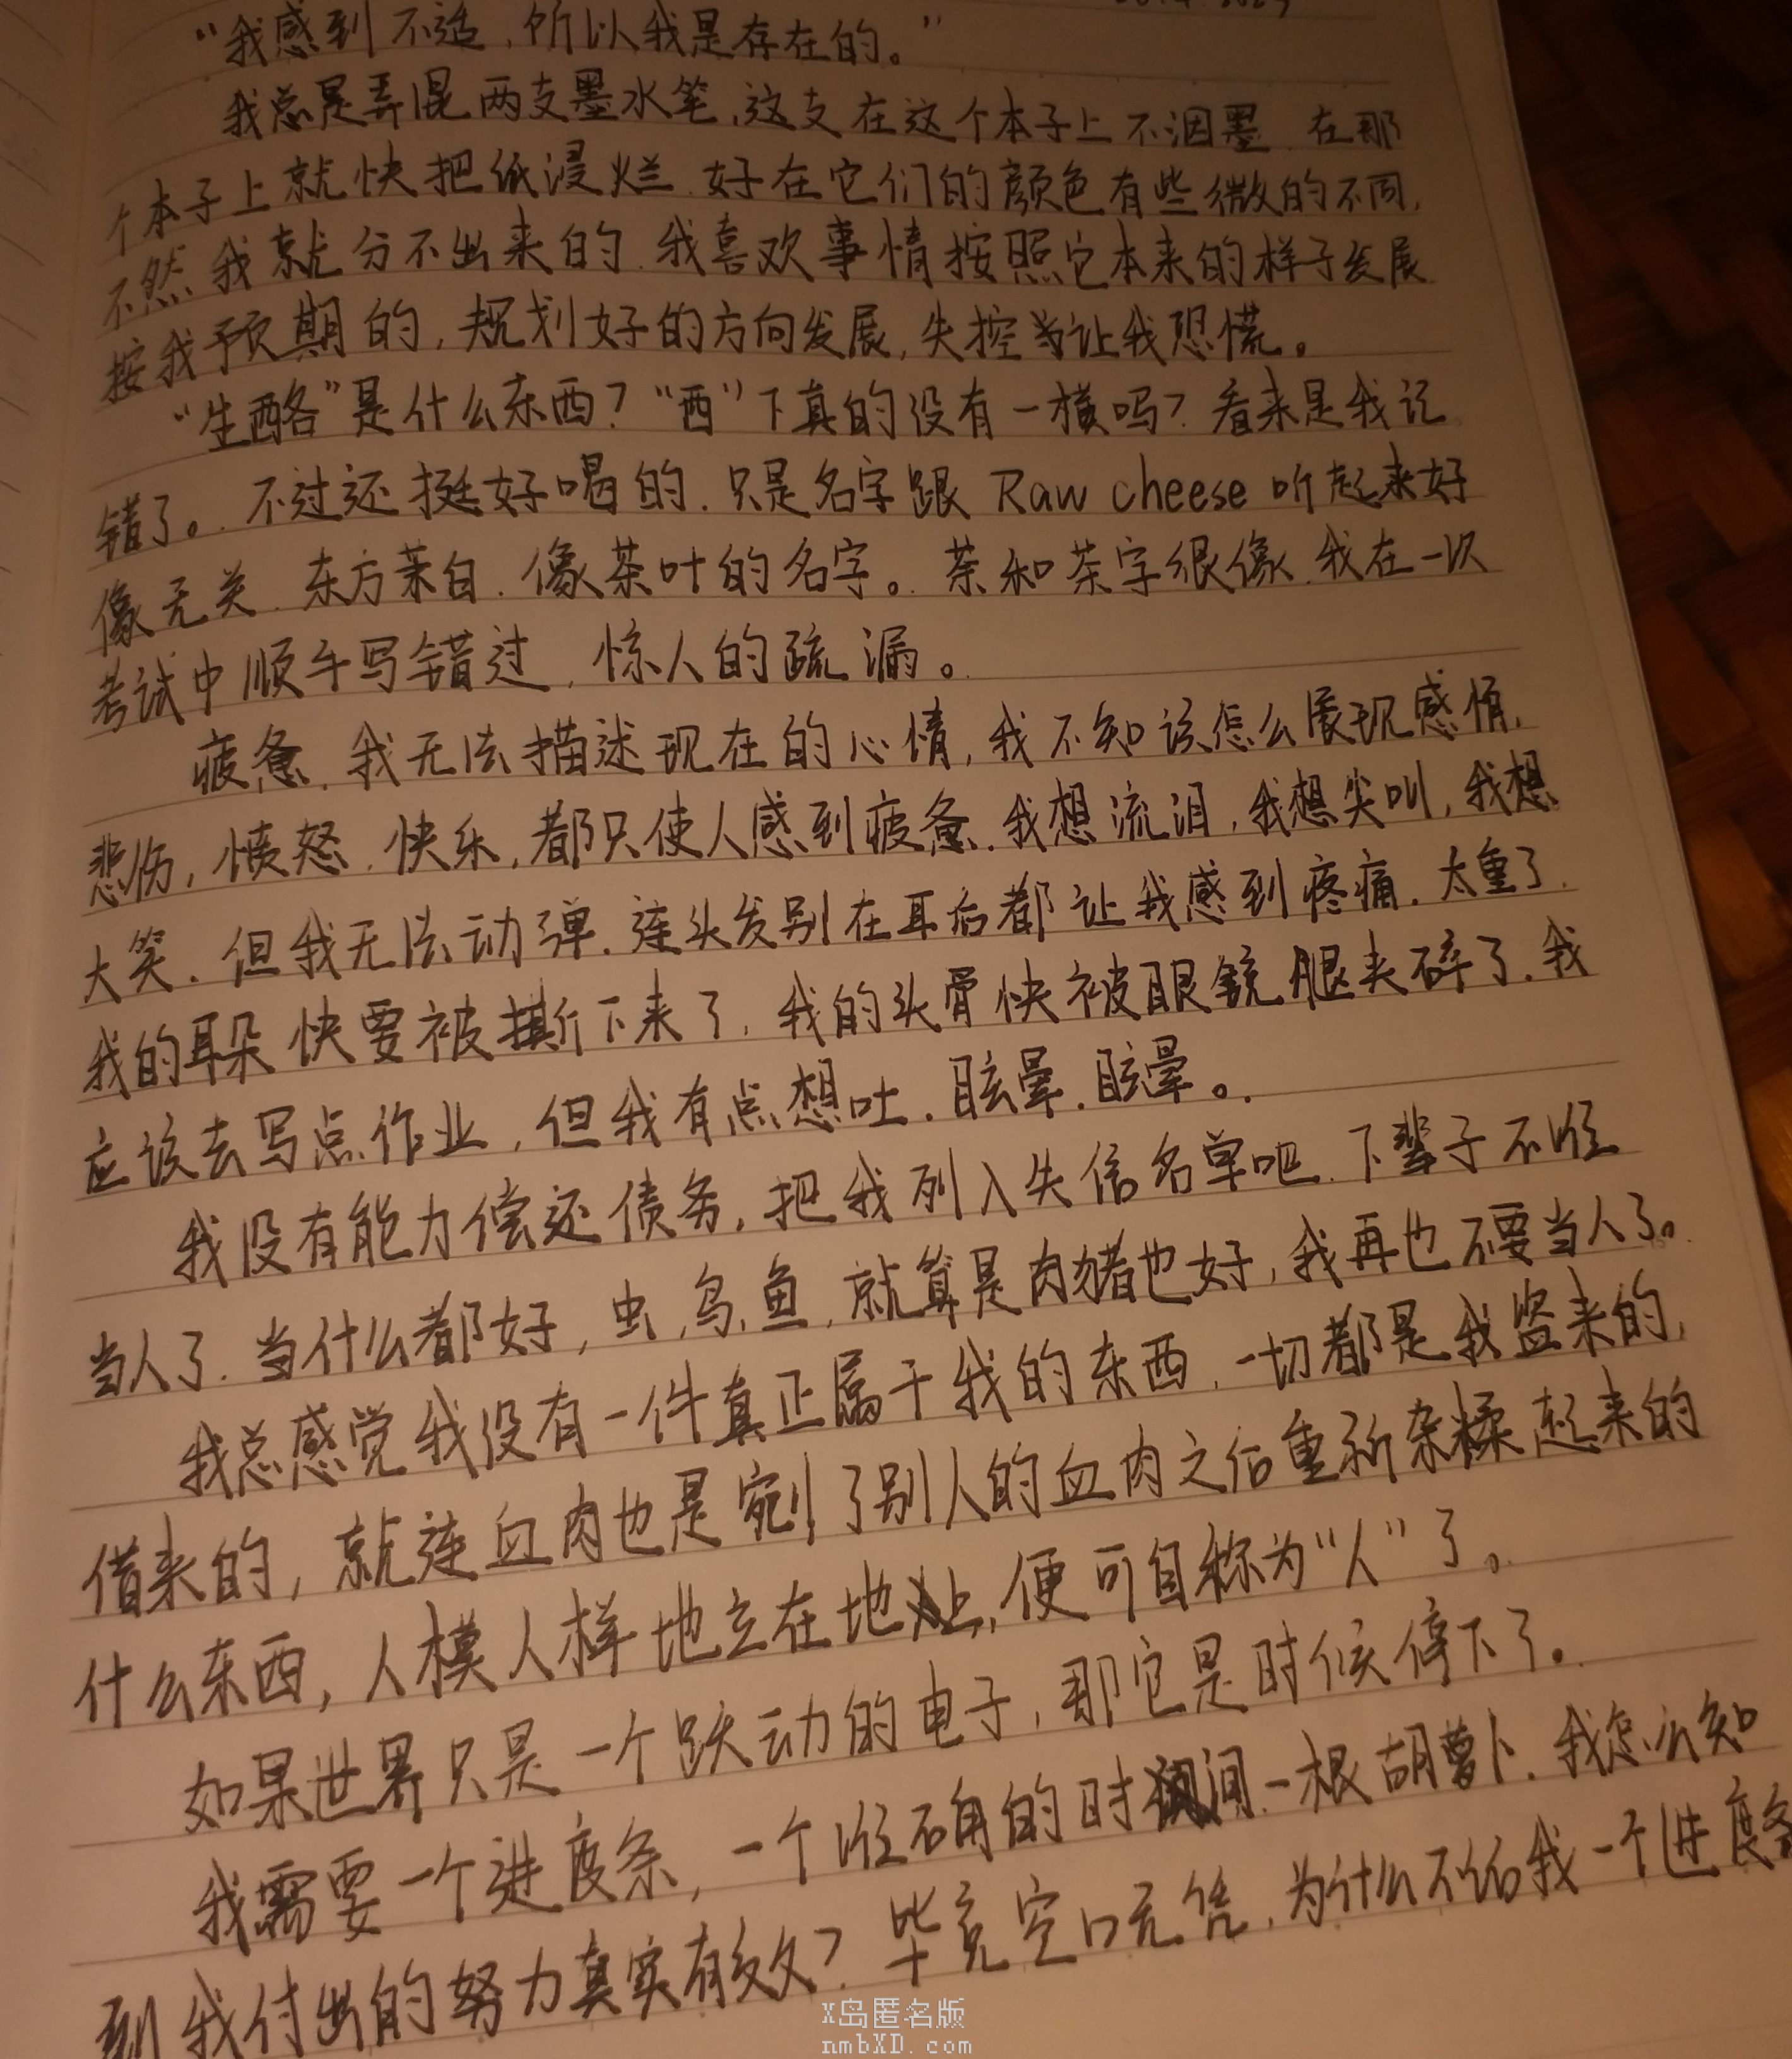 “我感到不适，所以我是存在的。”
我总是弄混两支墨水笔，这支在这个本子上不洇墨，在那
个本子上就快把纸浸烂。好在它们的颜色有些微的不同，
不然我就分不出来的。我喜欢事情按照它本来的样子发展
按我预期的，规划好的方向发展，失控当让我恐慌。
“生酪”是什么东西？“西”下真的没有一横吗？看来是我记
错了。不过还挺好喝的，只是名字跟 Raw cheese 听起来好
像无关。东方茉白，像茶叶的名字。荼和茶字很像，我在一次
考试中顺手写错过，惊人的疏漏。
疲惫，我无法描述现在的心情，我不知该怎么展现感情，
悲伤，愤怒，快乐，都只使人感到疲惫。我想流泪，我想尖叫，我想
大笑，但我无法动弹。连头发别在耳后都让我感到疼痛，太重了，
我的耳朵快要被撕下来了，我的头骨快被眼镜腿夹碎了。我
应该去写点作业，但我有点想吐，眩晕，眩晕。
我没有能力偿还债务，把我列入失信名单吧，下辈子不准
当人了，当什么都好，虫，鸟，鱼，就算是肉猪也好，我再也不要当人了。
我总感觉我没有一件真正属于我的东西，一切都是我盗来的，
借来的，就连血肉也是剜了别人的血肉之后重新杂糅起来的
什么东西，人模人样地立在地上，便可自称为“人”了。
如果世界只是一个跃动的电子，那它是时候停下了。
我需要一个进度条，一个准确的时间，一根胡萝卜，我怎么知
到我付出的努力真实有效？毕竟空口无凭，为什么不给我一个进度条
X岛匿名版
nmbXD.com